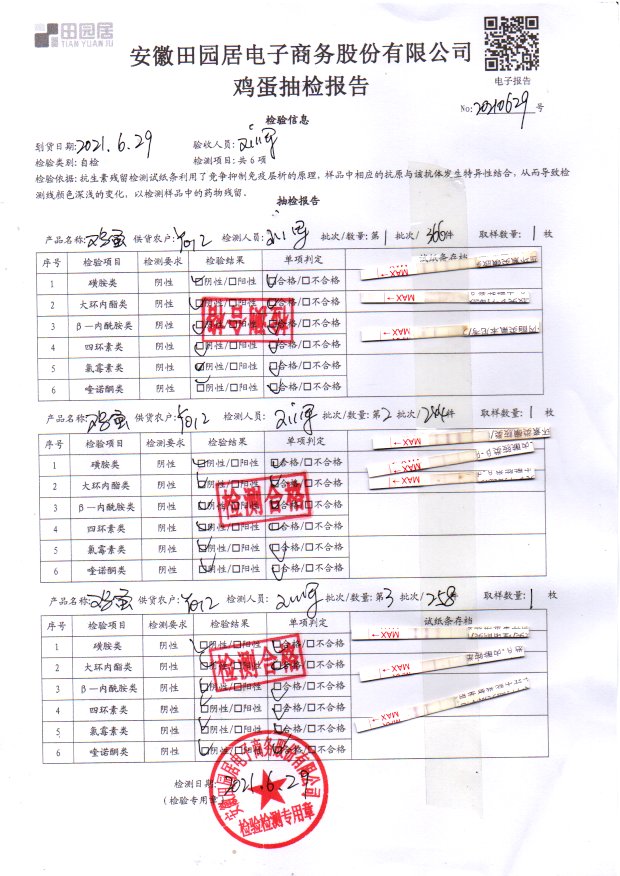 田园居
TIAN YUAN JU
安徽田园居电子商务股份有限公司
鸡蛋抽检报告
电子报告
No: 20210629 号
检验信息
到货日期: 2021.6.29 验收人员:
检验类别: 自检 检测项目: 共6项
检验依据: 抗生素残留检测试纸条利用了竞争抑制免疫层析的原理, 样品中相应的抗原与该抗体发生特异性结合, 从而导致检
测线颜色深浅的变化, 以检测样品中的药物残留。
抽检报告
产品名称: 鸡蛋 供货农户: 检测人员: 批次/数量: 第1批次/366件 取样数量: 1 枚
序号 检验项目 检测要求 检验结果 单项判定 试纸条存档
1 磺胺类 阴性 ☑阴性/□阳性 ☑合格/□不合格 MAX
2 大环内酯类 阴性 ☑阴性/□阳性 ☑合格/□不合格 MAX
3 β—内酰胺类 阴性 ☑阴性/□阳性 ☑合格/□不合格 MAX
4 四环素类 阴性 ☑阴性/□阳性 ☑合格/□不合格
5 氯霉素类 阴性 ☑阴性/□阳性 ☑合格/□不合格
6 喹诺酮类 阴性 ☑阴性/□阳性 ☑合格/□不合格
检测合格
产品名称: 鸡蛋 供货农户: 检测人员: 批次/数量: 第2批次/件 取样数量: 1 枚
序号 检验项目 检测要求 检验结果 单项判定
1 磺胺类 阴性 ☑阴性/□阳性 ☑合格/□不合格 MAX
2 大环内酯类 阴性 ☑阴性/□阳性 ☑合格/□不合格 MAX
3 β—内酰胺类 阴性 ☑阴性/□阳性 ☑合格/□不合格 MAX
4 四环素类 阴性 ☑阴性/□阳性 ☑合格/□不合格
5 氯霉素类 阴性 ☑阴性/□阳性 ☑合格/□不合格
6 喹诺酮类 阴性 ☑阴性/□阳性 ☑合格/□不合格
检测合格
产品名称: 鸡蛋 供货农户: 检测人员: 批次/数量: 第3批次/258件 取样数量: 1 枚
序号 检验项目 检测要求 检验结果 单项判定 试纸条存档
1 磺胺类 阴性 ☑阴性/□阳性 ☑合格/□不合格 MAX
2 大环内酯类 阴性 ☑阴性/□阳性 ☑合格/□不合格 MAX
3 β—内酰胺类 阴性 ☑阴性/□阳性 ☑合格/□不合格
4 四环素类 阴性 ☑阴性/□阳性 ☑合格/□不合格 MAX
5 氯霉素类 阴性 ☑阴性/□阳性 ☑合格/□不合格
6 喹诺酮类 阴性 ☑阴性/□阳性 ☑合格/□不合格
检测合格
检测日期: 2021.6.29
(检验专用章)
安徽田园居电子商务股份有限公司
检验检测专用章